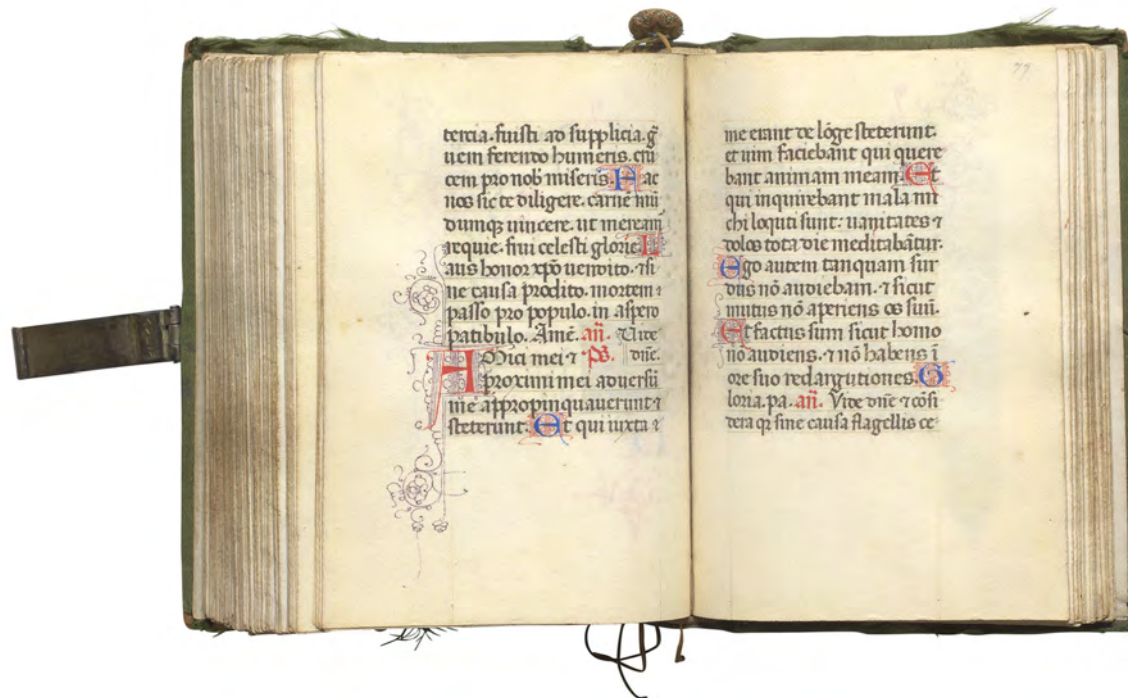 tercia. fuisti ad supplicia. g̃
uem ferendo humeris. cru
cem pro nob̃ miseris. F ac
nos sic te diligere. carnẽ mũ
dumqꝫ uincere. ut meream̃
requie. frui celesti glorie. L
aus honor xp̃o uendito. ⁊ si
ne causa prodito. mortem ⁊
passo pro populo. in aspero
patibulo. Amẽ. añ. Vide
A Mici mei ⁊ p̃s. dñe.
proximi mei aduersũ
me appropinquauerunt ⁊
steterunt. Et qui iuxta ⁊
77
me erant de lõge steterunt.
et uim faciebant qui quere
bant animam meam. Et
qui inquirebant mala mi
chi loquti sunt: uanitates ⁊
dolos tota die meditabãtur.
Ego autem tanquam sur
dus nõ audiebam. ⁊ sicut
mutus nõ aperiens os suũ.
Et factus sum sicut homo
nõ audiens. ⁊ nõ habens ĩ
ore suo redargutiones. G
loria. pa. añ. Vide dñe ⁊ cõsi
dera qꝛ sine causa flagellis ce